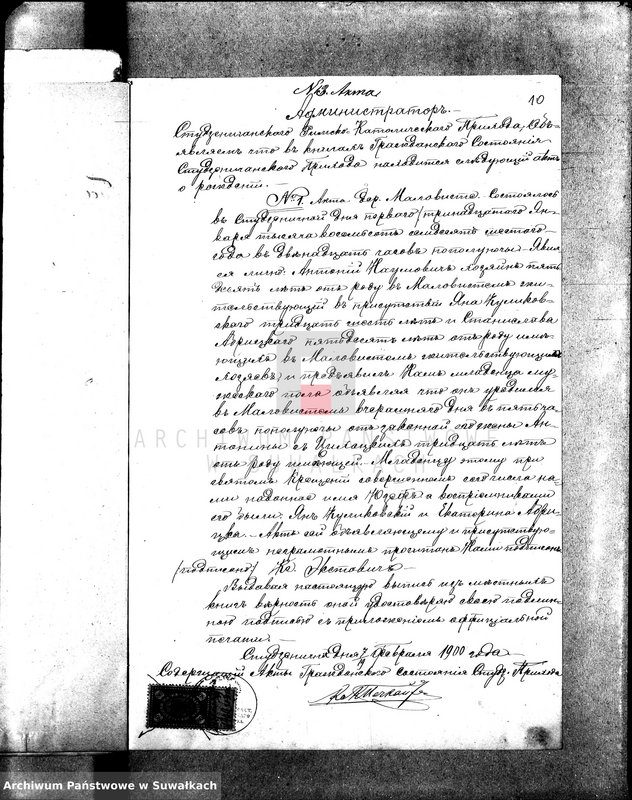 № 3. Акта
10
Администраторъ.
Студзеничанского Римско-Католическаго Прихода, Объ-
являемъ что въ книгахъ Гражданскаго Состоянія
Студзеничанскаго Прихода находится слѣдующій актъ
о рожденіи.
№ 1. Акта. Дер. Маловисте. Состоялось
въ Студзеничной дня перваго/тринадцатого Ян-
варя тысяча восемьсотъ семдесятъ шестого
года въ двѣнадцать часовъ пополуночи. Явил
ся лично: Антоній Наумовичъ хозяинъ пять
десять лѣтъ отъ роду въ Маловистомъ жи-
тельствующій въ присутствіи Яна Куликов-
скаго тридцать шесть лѣтъ и Станислава
пятьдесятъ лѣтъ отъ роду имѣ-
ющихъ въ Маловистомъ жительствующихъ
хозяевъ, и предъявилъ Намъ младенца му-
жескаго пола объявляя что онъ уродился
въ Маловистомъ вчерашняго дня въ пять ча-
совъ пополуночи отъ законной его жены Ан-
тонины съ тридцать лѣтъ
отъ роду имѣющей. Младенцу этому при
святомъ Крещеніи совершенномъ сего числа на-
ми наданное имя Юзефъ, а воспріемниками
его были: Янъ Куликовскій и Екатерина
Актъ сей объявляющему и присутствую-
щимъ неграмотнымъ прочитанъ Нами подписанъ
/подписано/ Кс.
Выдавая настоящую выпись изъ мѣстныхъ
книгъ вѣрность оной удостовѣряю своею подлин-
ною подписью съ приложеніемъ оффиціальной
печати.
Студзенична дня 7 Февраля 1900 года
Содержащій Акты Гражданскаго состоянія Студ. Прихода
ARCHIWUM
Archiwum Państwowe w Suwałkach